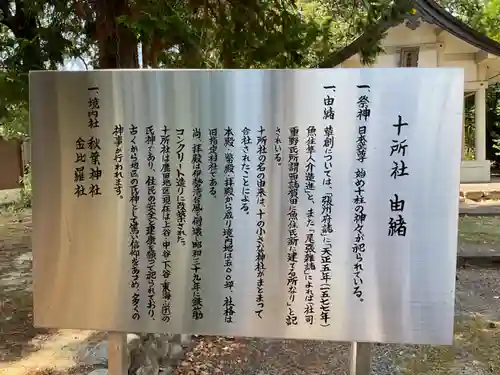 十所社 由緒
一、祭神 日本武尊 始め十柱の神々が祀られている。
一、由緒 草創については、「張州府誌」に「天正五年(一五七七年)
魚住隼人佑造進」と、また「尾張雑誌」によれば「社司
重野氏所謂西諸城田に魚住氏新に建てる所なり」と記
されている。
十所社の名の由来は、十の小さな神社がまとまって
合社されたことによる。
本殿、祭殿、拝殿から成り境内地は五〇〇坪、社格は
旧指定村社である。
尚、拝殿は伊勢湾台風で倒壊、昭和三十九年に鉄筋
コンクリート造りに改築された。
十所社は鷹田地区(現在は上谷・中谷・下谷・東海ニュ)の
氏神であり、住民の安全と健康を願って祀られており、
古くから地区の氏神として篤い信仰をあつめ、多くの
神事が行われます。
一、境内社 秋葉神社
金比羅社